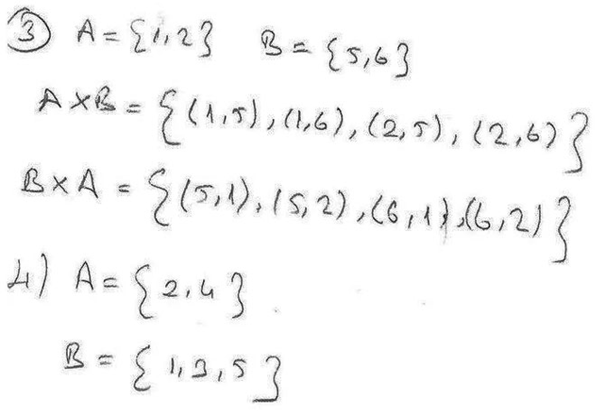 ③ A = {1,2} B = {5,6}
A×B = {(1,5), (1,6), (2,5), (2,6)}
B×A = {(5,1), (5,2), (6,1), (6,2)}
4) A = {2,4}
B = {1,3,5}